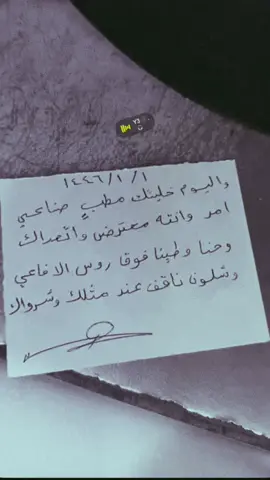 ١٤٤٦/١/١
واليوم خليتك مطبٍ صناعي
امر وانته معترض واتعداك
وحنا وطينا فوق روس الافاعي
وشلون ناقف عند مثلك وشرواك